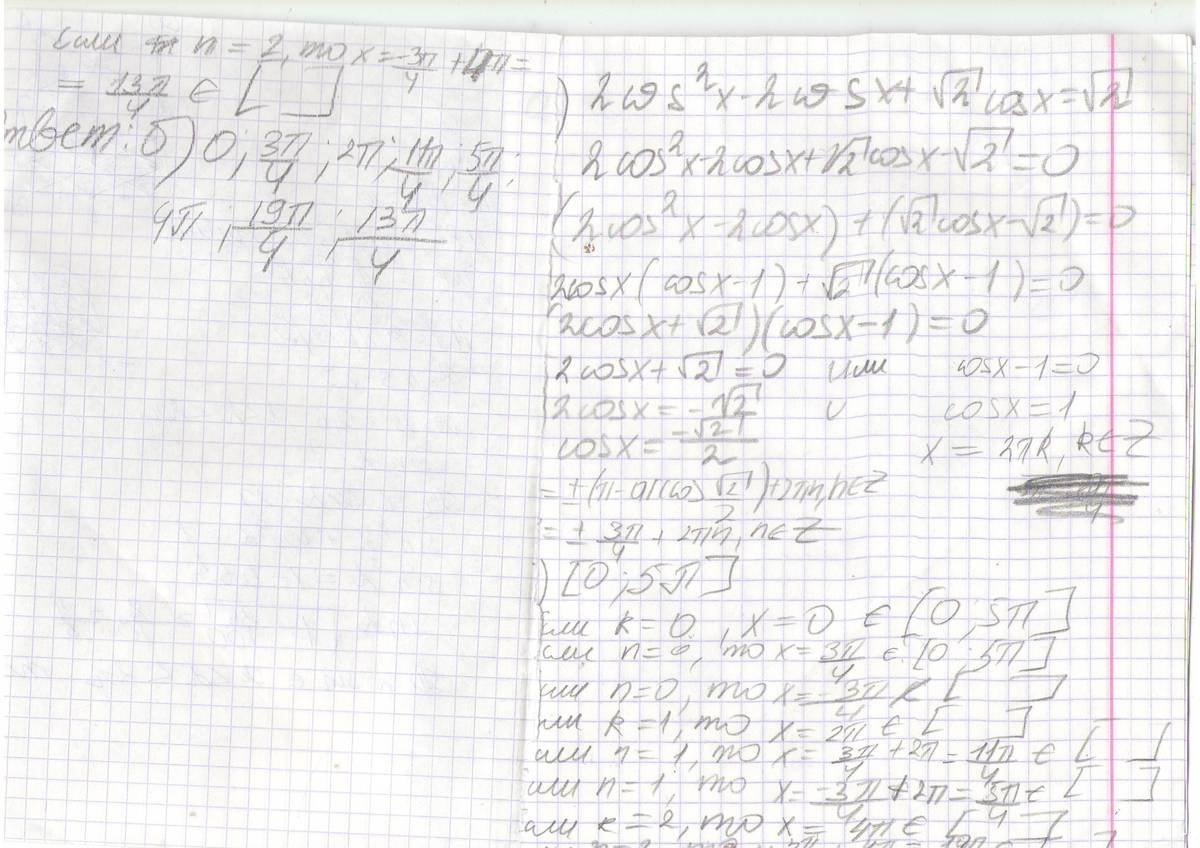 Если n = 2, то x = -3π/4 + 4π =
= 13π/4 ∈ [ ]
твет: б) 0; 3π/4; 2π; 11π/4; 5π/4;
4π; 19π/4; 13π/4
) 2cos²x - 2cosx + √2 cosx = √2
2cos²x - 2cosx + √2 cosx - √2 = 0
(2cos²x - 2cosx) + (√2 cosx - √2) = 0
2cosx(cosx - 1) + √2(cosx - 1) = 0
(2cosx + √2)(cosx - 1) = 0
2cosx + √2 = 0 или cosx - 1 = 0
2cosx = -√2 и cosx = 1
cosx = -√2/2 x = 2πk, k ∈ Z
= ±(π - arccos √2/2) + 2πn, n ∈ Z
= ± 3π/4 + 2πn, n ∈ Z
) [0; 5π]
или k = 0, x = 0 ∈ [0; 5π]
или n = 0, то x = 3π/4 ∈ [0; 5π]
или n = 0, то x = -3π/4 ∉ [ ]
или k = 1, то x = 2π ∈ [ ]
или n = 1, то x = 3π/4 + 2π = 11π/4 ∈ [ ]
или n = 1, то x = -3π/4 + 2π = 5π/4 ∈ [ ]
или k = 2, то x = 4π ∈ [ ]